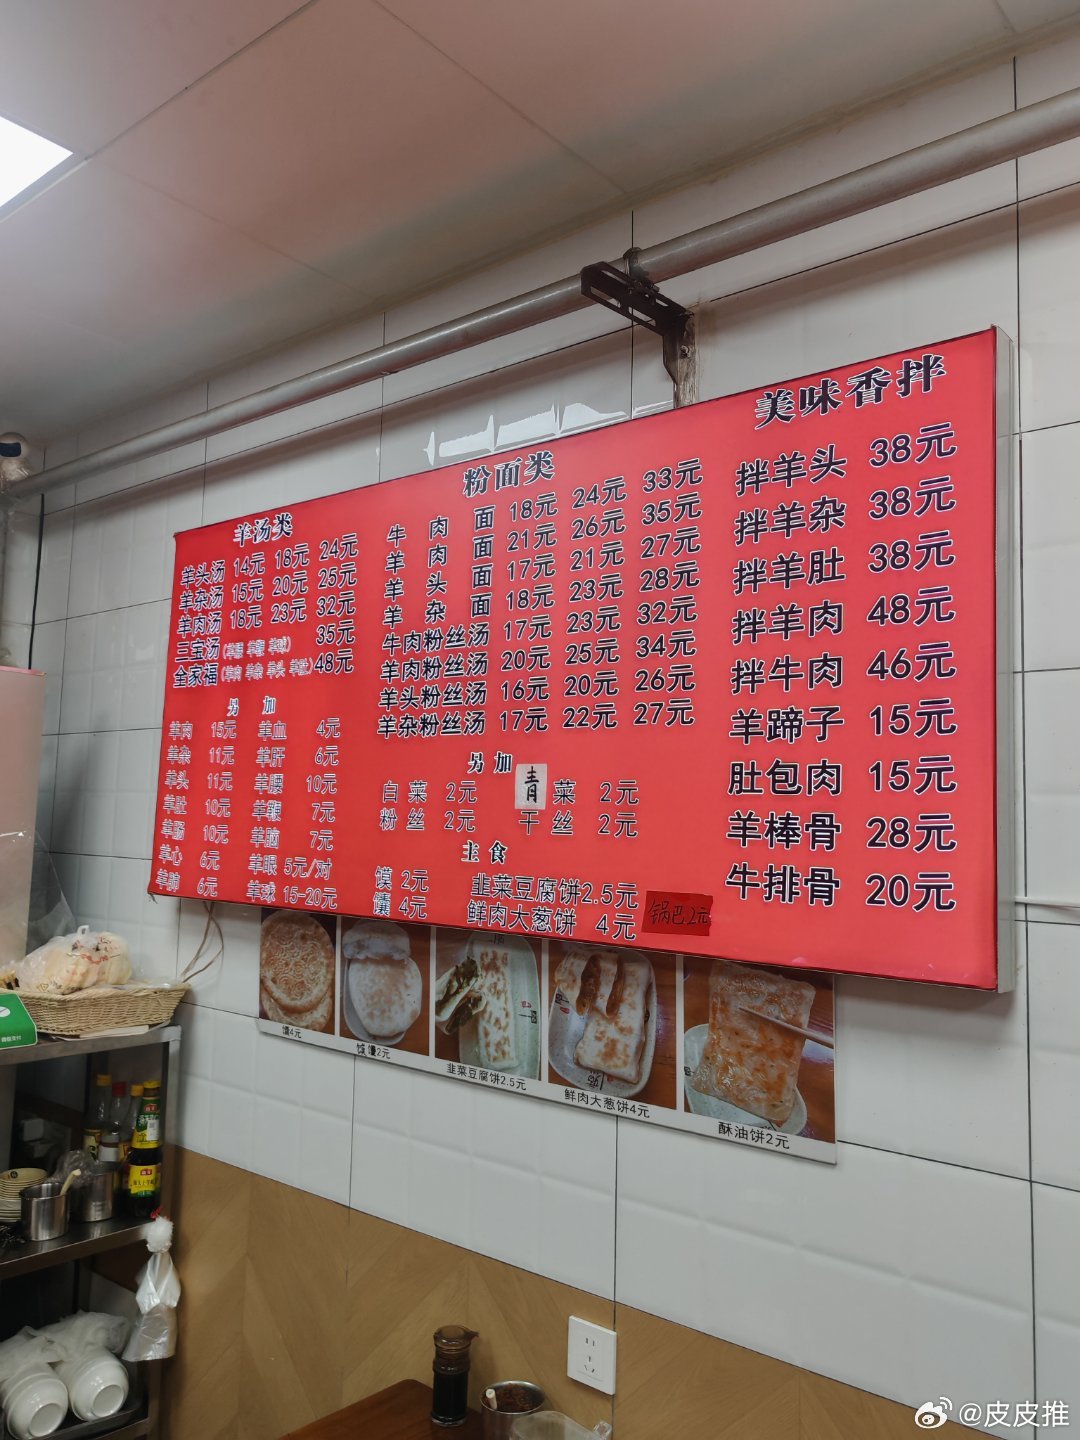 羊汤类
羊头汤 14元 18元 24元
羊杂汤 15元 20元 25元
羊肉汤 18元 23元 32元
三宝汤 35元
全家福(羊肉 羊杂 羊头 羊肚) 48元
另 加
羊肉 15元 羊血 4元
羊杂 11元 羊肝 6元
羊头 11元 羊腰 10元
羊肚 10元 羊鞭 7元
羊肠 10元 羊脑 7元
羊心 6元 羊眼 5元/对
羊肺 6元 羊球 15-20元
粉面类
牛肉面 18元 24元 33元
羊肉面 21元 26元 35元
羊头面 17元 21元 27元
羊杂面 18元 23元 28元
牛肉粉丝汤 17元 23元 32元
羊肉粉丝汤 20元 25元 34元
羊头粉丝汤 16元 20元 26元
羊杂粉丝汤 17元 22元 27元
另加
白菜 2元 青菜 2元
粉丝 2元 干丝 2元
主食
馍 2元 韭菜豆腐饼2.5元
馕 4元 鲜肉大葱饼 4元
锅巴2元
美味香拌
拌羊头 38元
拌羊杂 38元
拌羊肚 38元
拌羊肉 48元
拌牛肉 46元
羊蹄子 15元
肚包肉 15元
羊棒骨 28元
牛排骨 20元
馕4元
馍2元
韭菜豆腐饼2.5元
鲜肉大葱饼4元
酥油饼2元
@皮皮推